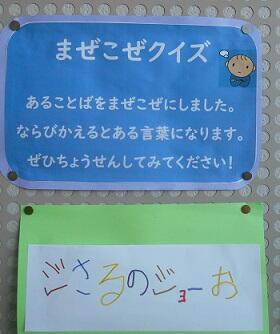 まぜこぜクイズ
あることばをまぜこぜにしました。
ならびかえるとある言葉になります。
ぜひちょうせんしてみてください！
ごさるのジョーお